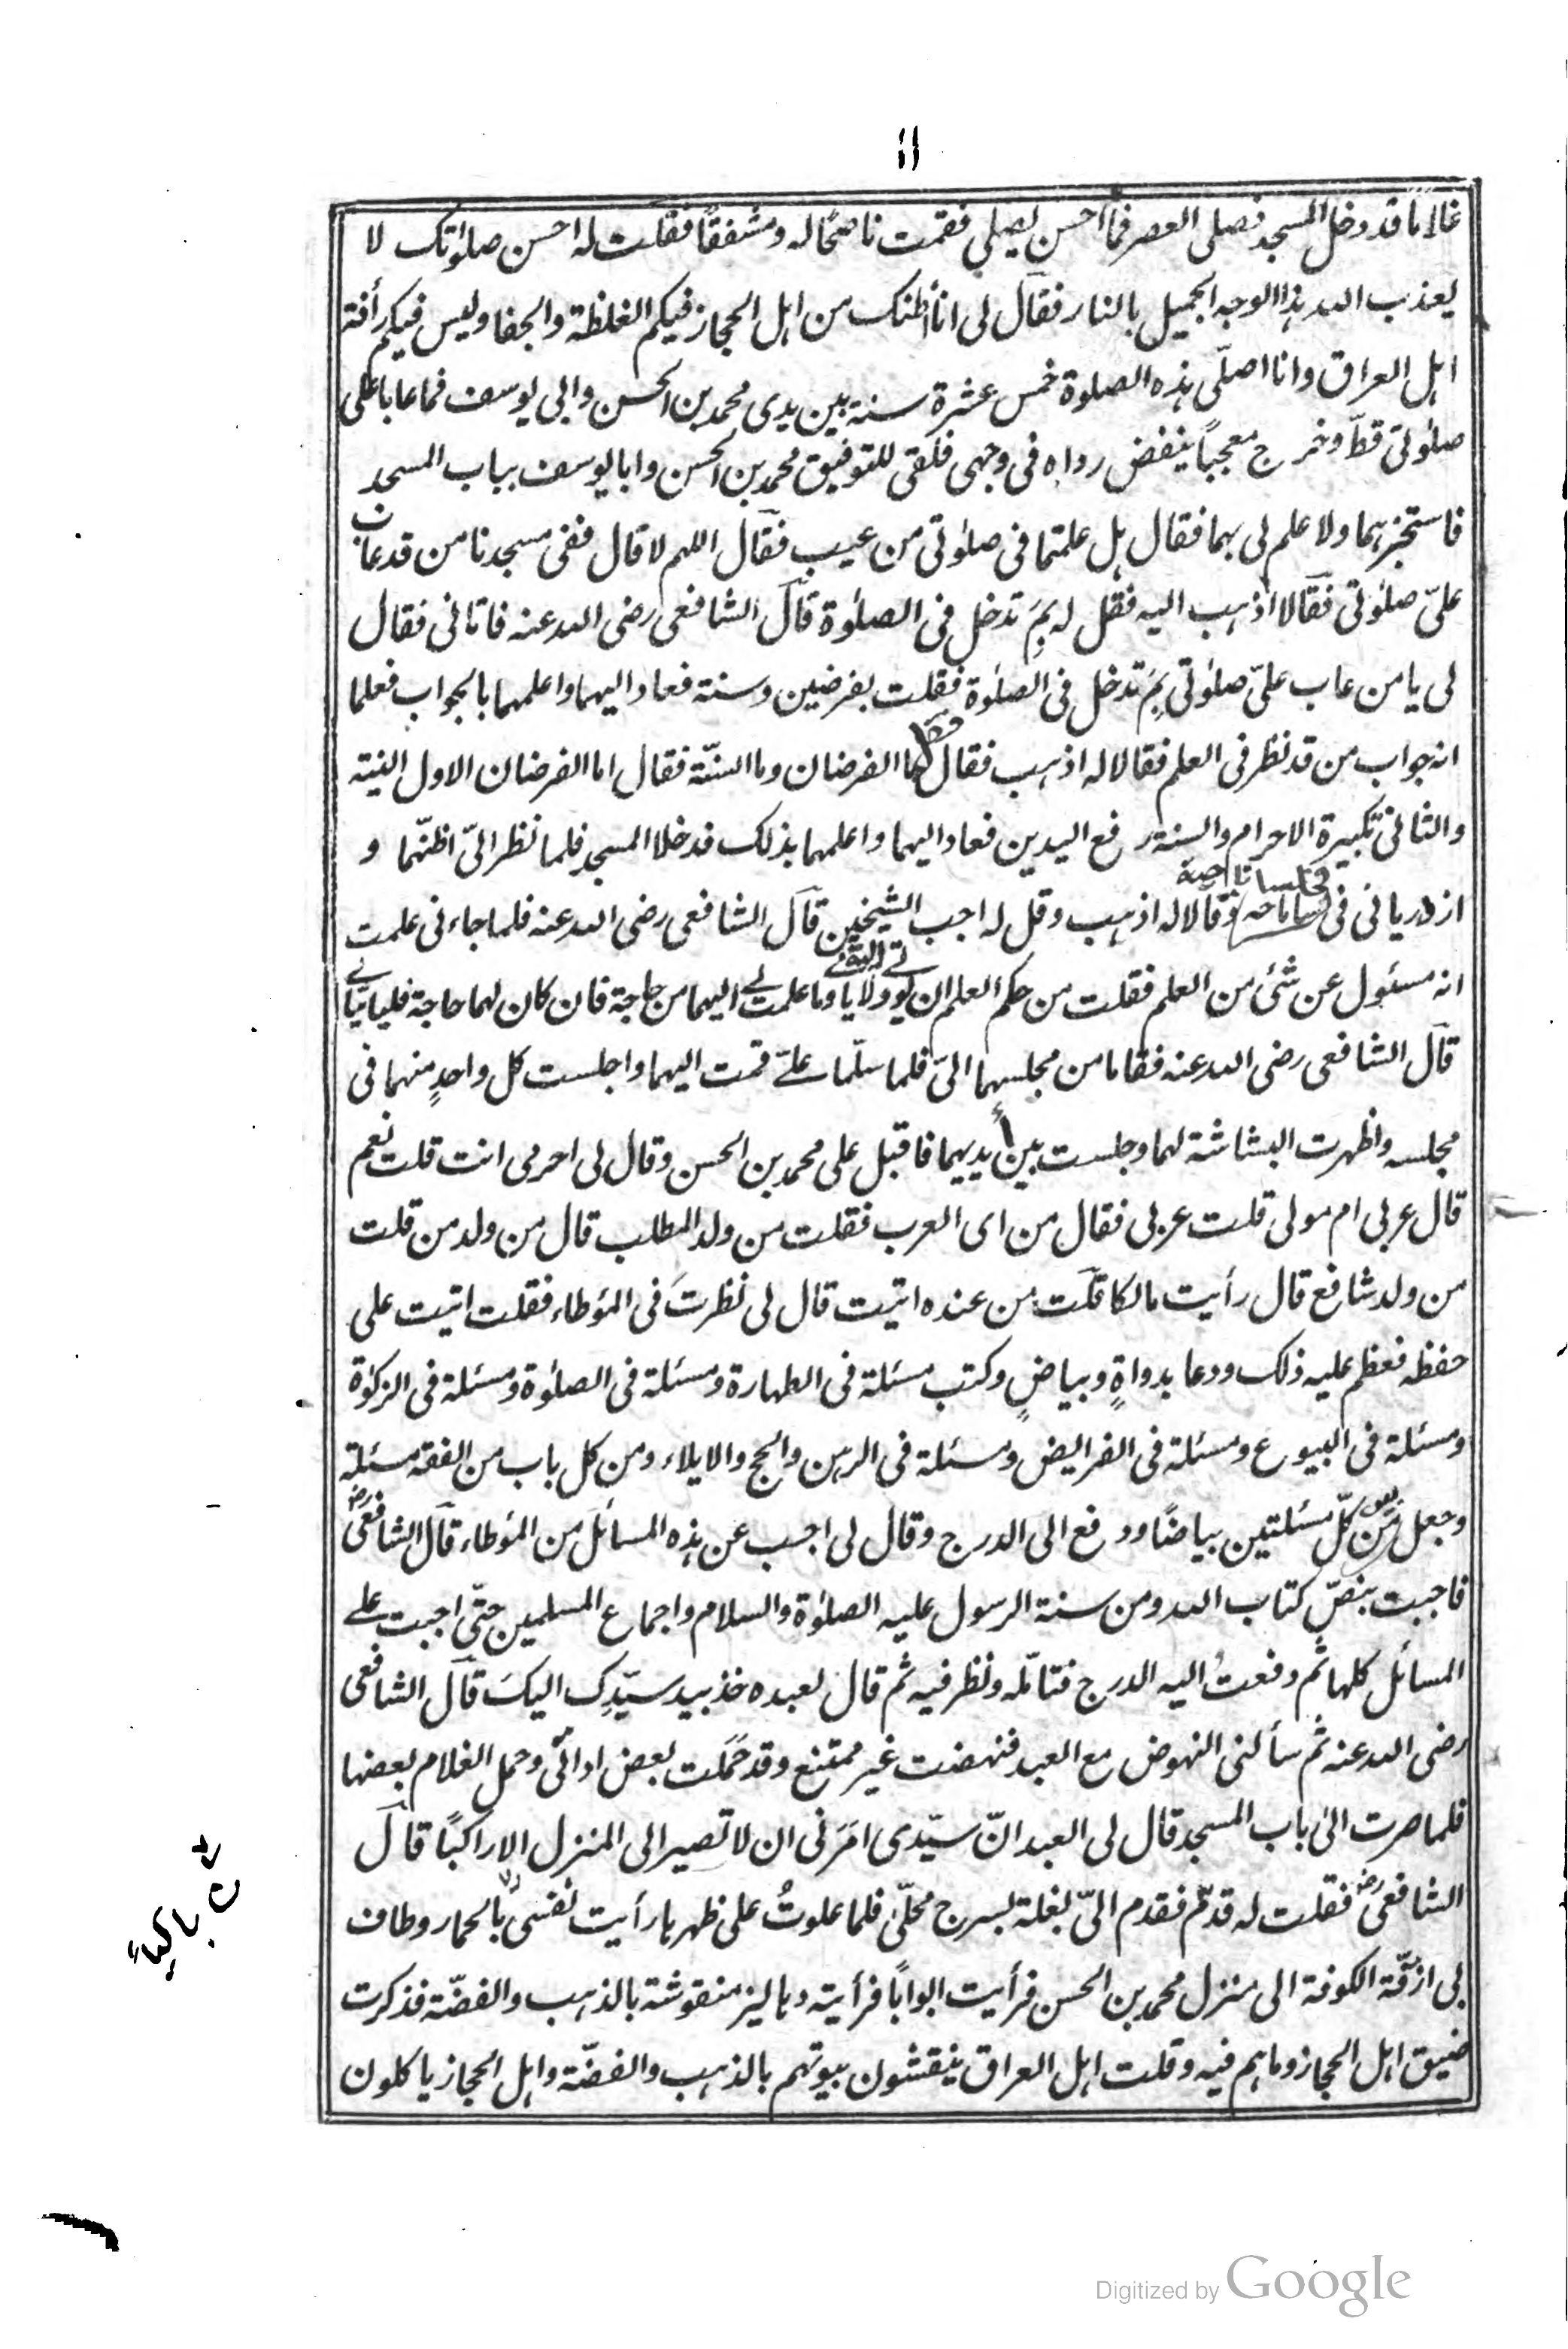 ١١
غلاما قد دخل المسجد فصلى العصر فما احسن يصلي فقمت ناصحًا له و مشفقًا فقلت له احسن صلوٰتك لا
يعذب الله هذا الوجه الجميل بالنار فقآل لى انا اظنك من اهل الحجاز فيكم الغلظة والجفا وليس فيكم رأفة
اهل العراق وانا اصلّى هذه الصلوة خمس عشرة سنة بين يدى محمد بن الحسن وابى يوسف فما عابا على
صلوٰتى قطّ وخرج معجبًا ينفض رداه فى وجهى فلقى للتوفيق محمد بن الحسن وابا يوسف بباب المسجد
فاستخبرهما ولا علم لى بهما فقال هل علمتما فى صلوٰتى من عيب فقآل اللهم لا قال ففى مسجدنا من قد عاب
علىّ صلوٰتى فقآلا اذهب اليه فقل له بِمَ تدخل فى الصلوٰة قآل الشافعى رضى الله عنه فاتانى فقال
لى يا من عاب علىّ صلوٰتى بِمَ تدخل فى الصلوٰة فقلت بفرضين وسنة فعاد اليهما واعلمهما بالجواب فعلما
انه جواب من قد نظر فى العلم فقالا له اذهب فقال ما الفرضان وما السنّة فقال اما الفرضان الاول النية
والثانى تكبيرة الاحرام والسنة رفع اليدين فعاد اليهما واعلمهما بذلك فدخلا المسجد فلما نظر الىّ اظنّهما و
ازدريانى فى فجلسا ناحية وقالا له اذهب وقل له اجب الشيخين قآل الشافعى رضى الله عنه فلما جاءنى علمت
انه مسئول عن شئ من العلم فقلت من حكم العلم ان يوتى ولا ياتى وما علمت لى اليهما من حاجة فان كان لهما حاجة فلياتيانى
قآل الشافعى رضى الله عنه فقاما من مجلسهما الىّ فلما سلّما علىّ قمت اليهما واجلست كل واحدٍ منهما فى
مجلسه واظهرت البشاشة لهما وجلست بين ايديهما فاقبل على محمد بن الحسن وقال لى احرمى انت قلت نعم
قال عربى ام مولى قلت عربى فقال من اى العرب فقلت من ولد المطلب قال من ولد من قلت
من ولد شافع قال رأيت مالكا قلت من عنده اتيت قال لى نظرتَ فى المؤطاء فقلت اتيت على
حفظه فعظم عليه ذلك ودعا بدواةٍ وبياضٍ وكتب مسئلة فى الطهارة ومسئلة فى الصلوٰة ومسئلة فى الزكوٰة
ومسئلة فى البيوع ومسئلة فى الفرايض ومسئلة فى الرهن والحج والايلاء ومن كل باب من الفقه مسئلة
وجعل بين كلّ مسئلتين بياضًا ودفع الى الدرج وقال لى اجب عن هذه المسائل من المؤطاء قآل الشافعى رض
فاجبت بنصّ كتاب الله ومن سنة الرسول عليه الصلوٰة والسلام واجماع المسلمين حتّى اجبت على
المسائل كلها ثم دفعتُ اليه الدرج فتامّله ونظر فيه ثم قال لعبده خذ بيد سيّدِك اليكَ قآل الشافعى
رضى الله عنه ثم سألنى النهوض مع العبد فنهضت غير ممتنع وقد حَمَلت بعض اداتى وحمل الغلام بعضها
فلما صرت الى باب المسجد قال لى العبد انّ سيّدى امَرَنى ان لا تصير الى المنزل الا راكبًا قآل
الشافعى رض فقلت له قدّم فقدم الىّ بغلة بسرج محلّى فلما علوتُ على ظهرها رأيت نفسى بالحمار وطاف
بى ازقّة الكوفة الى منزل محمد بن الحسن فرأيت ابوابًا فرأيته دهاليز منقوشة بالذهب والفضّة فذكرت
ضيق اهل الحجاز وما هم فيه وقلت اهل العراق ينقشون بيوتهم بالذهب والفضّة واهل الحجاز ياكلون
Digitized by Google